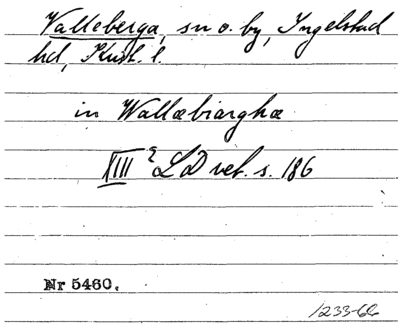 Valleberga, sn o. by, Ingelstad
hd, Krist. l.
in Wallæbiarghæ
XIII 2 LD vet. s. 186
Nr 5460.
1233-66